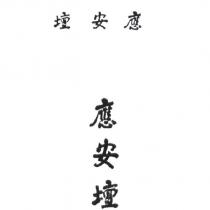 應安壇
應安壇